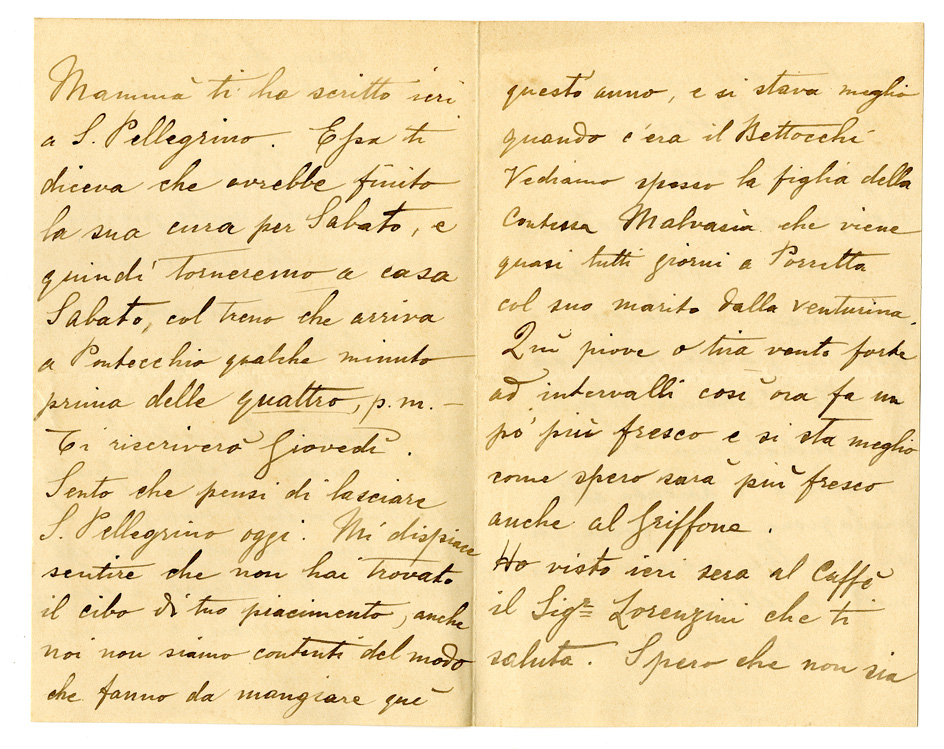 Mammà ti ha scritto ieri
a S. Pellegrino. Essa ti
diceva che avrebbe finito
la sua cura per Sabato, e
quindi torneremo a casa
Sabato, col treno che arriva
a Pontecchio qualche minuto
prima delle quattro, p.m. –
Ti riscriverò Giovedì.
Sento che pensi di lasciare
S. Pellegrino oggi. Mi dispiace
sentire che non hai trovato
il cibo di tuo piacimento, anche
noi non siamo contenti del modo
che fanno da mangiare quì
questo anno, e si stava meglio
quando c'era il Bettocchi
Vediamo spesso la figlia della
Contessa Malvasia che viene
quasi tutti giorni a Porretta
col suo marito dalla venturina.
Quì piove o tira vento forte
ad intervalli così ora fa un
pò più fresco e si sta meglio
come spero sarà più fresco
anche al Griffone.
Ho visto ieri sera al Caffè
il Sigr Lorenzini che ti
saluta. Spero che non sia